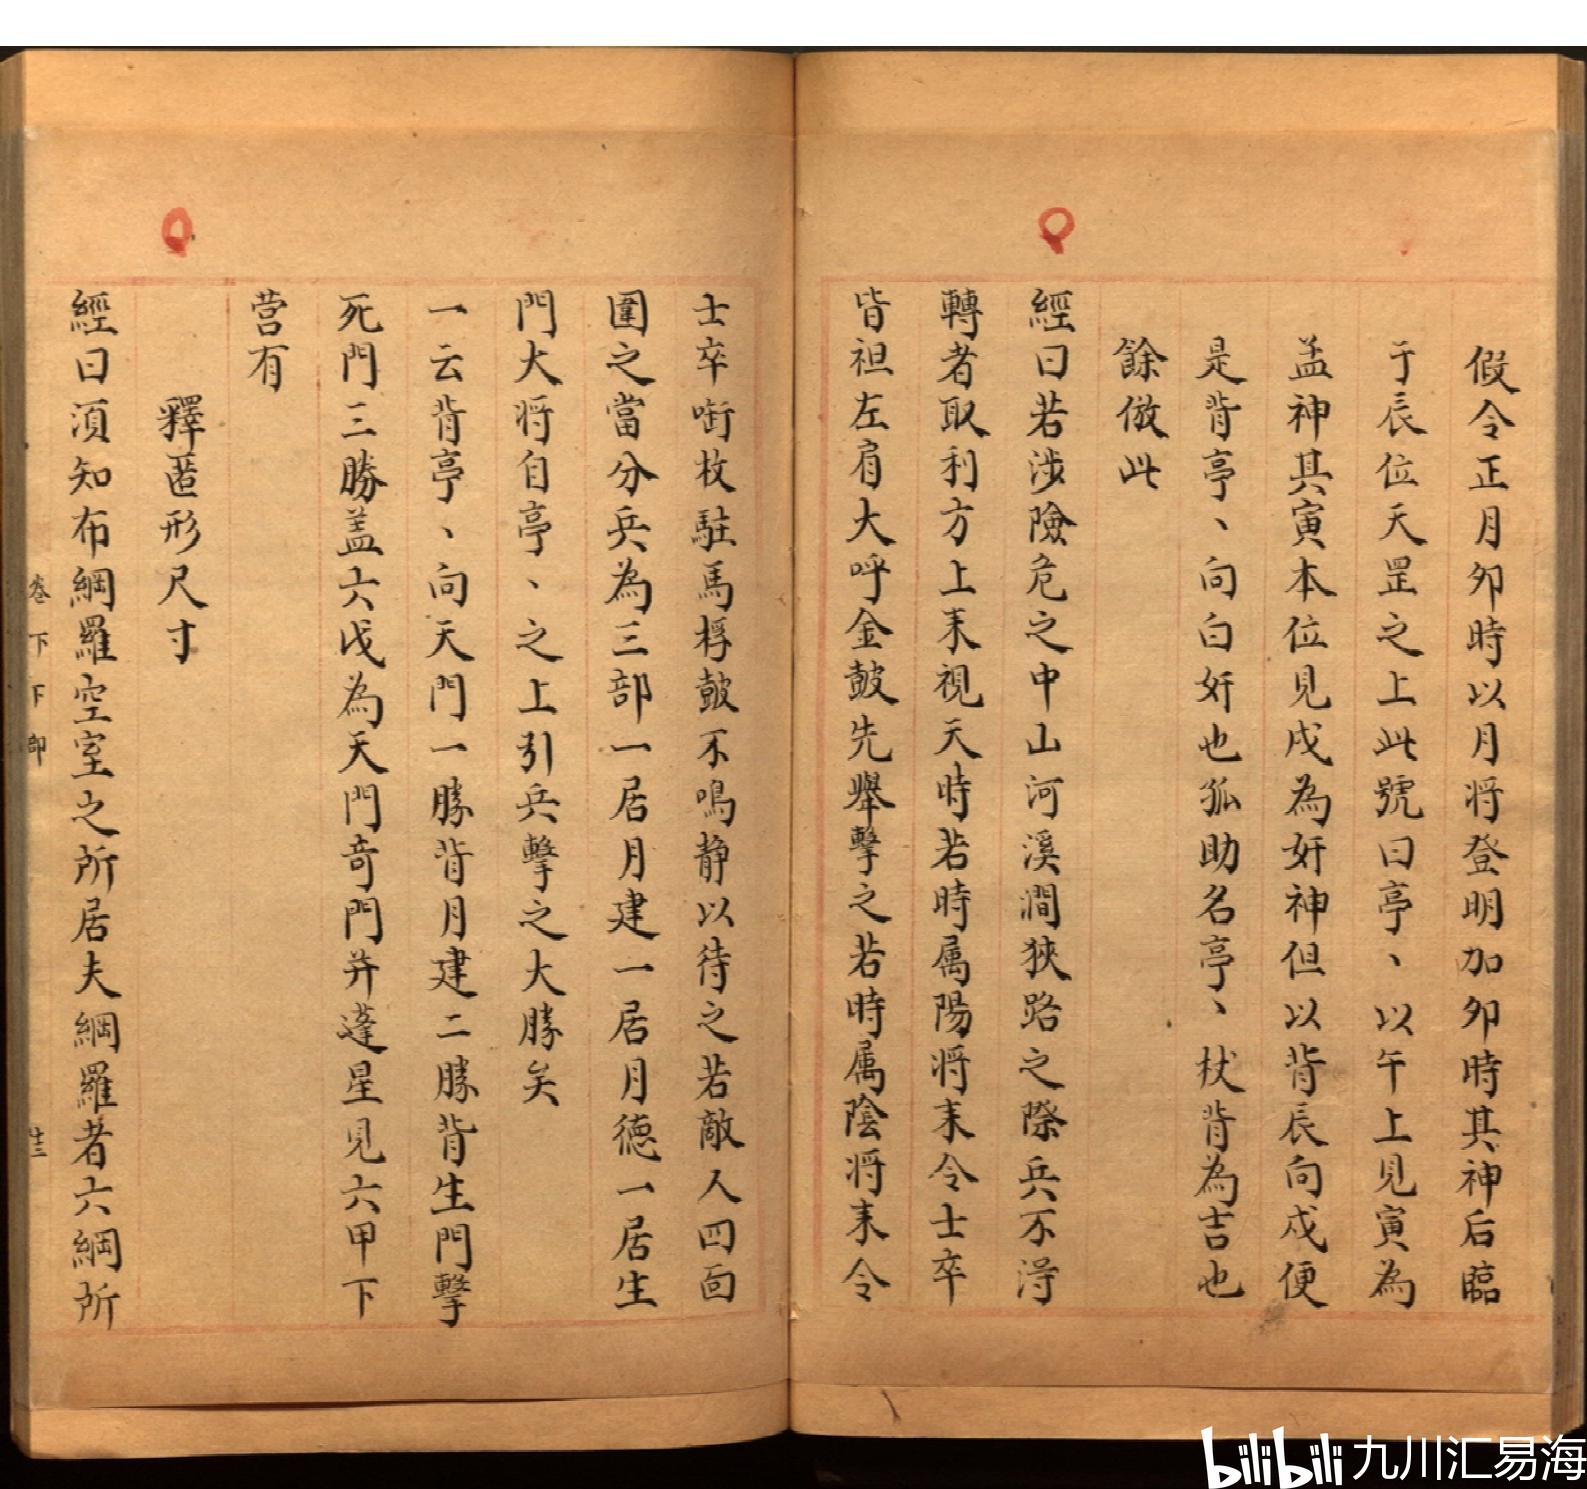 假令正月夘時以月将登明加夘時其神后臨
于辰位天罡之上此號曰亭、以午上見寅為
孟神其寅本位見戌為奸神但以背辰向戌便
是背亭、向白奸也孤助名亭、杖背為吉也
餘倣此
經曰若涉險危之中山河溪澗狹路之際兵不淂
轉者取利方上来視天時若時属陽將来令士卒
皆袒左肩大呼金皷先舉擊之若時属陰将来令
士卒啣枚駐馬桴皷不鳴静以待之若敵人四面
圍之當分兵為三部一居月建一居月德一居生
門大将自亭、之上引兵擊之大勝矣
一云背亭、向天門一勝背月建二勝背生門擊
死門三勝盖六戊為天門奇門并蓬星見六甲下
营有
釋匿形尺寸
經曰須知布綱羅空室之所居夫綱羅者六綱所
卷下下
九川汇易海
bilibili